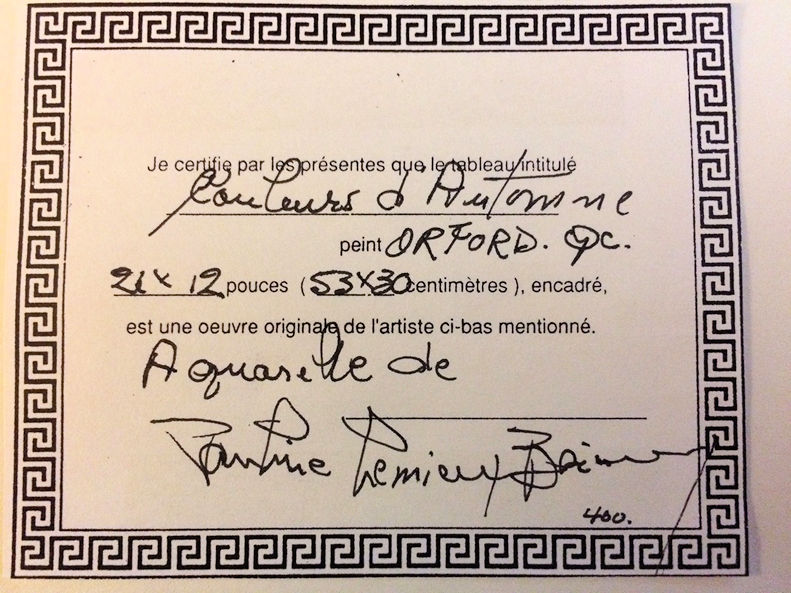 Je certifie par les présentes que le tableau intitulé
Couleurs d'Automne
peint ORFORD. QC.
21 x 12 pouces ( 53x30 centimètres ), encadré,
est une oeuvre originale de l'artiste ci-bas mentionné.
Aquarelle de
Pauline Lemieux
400.